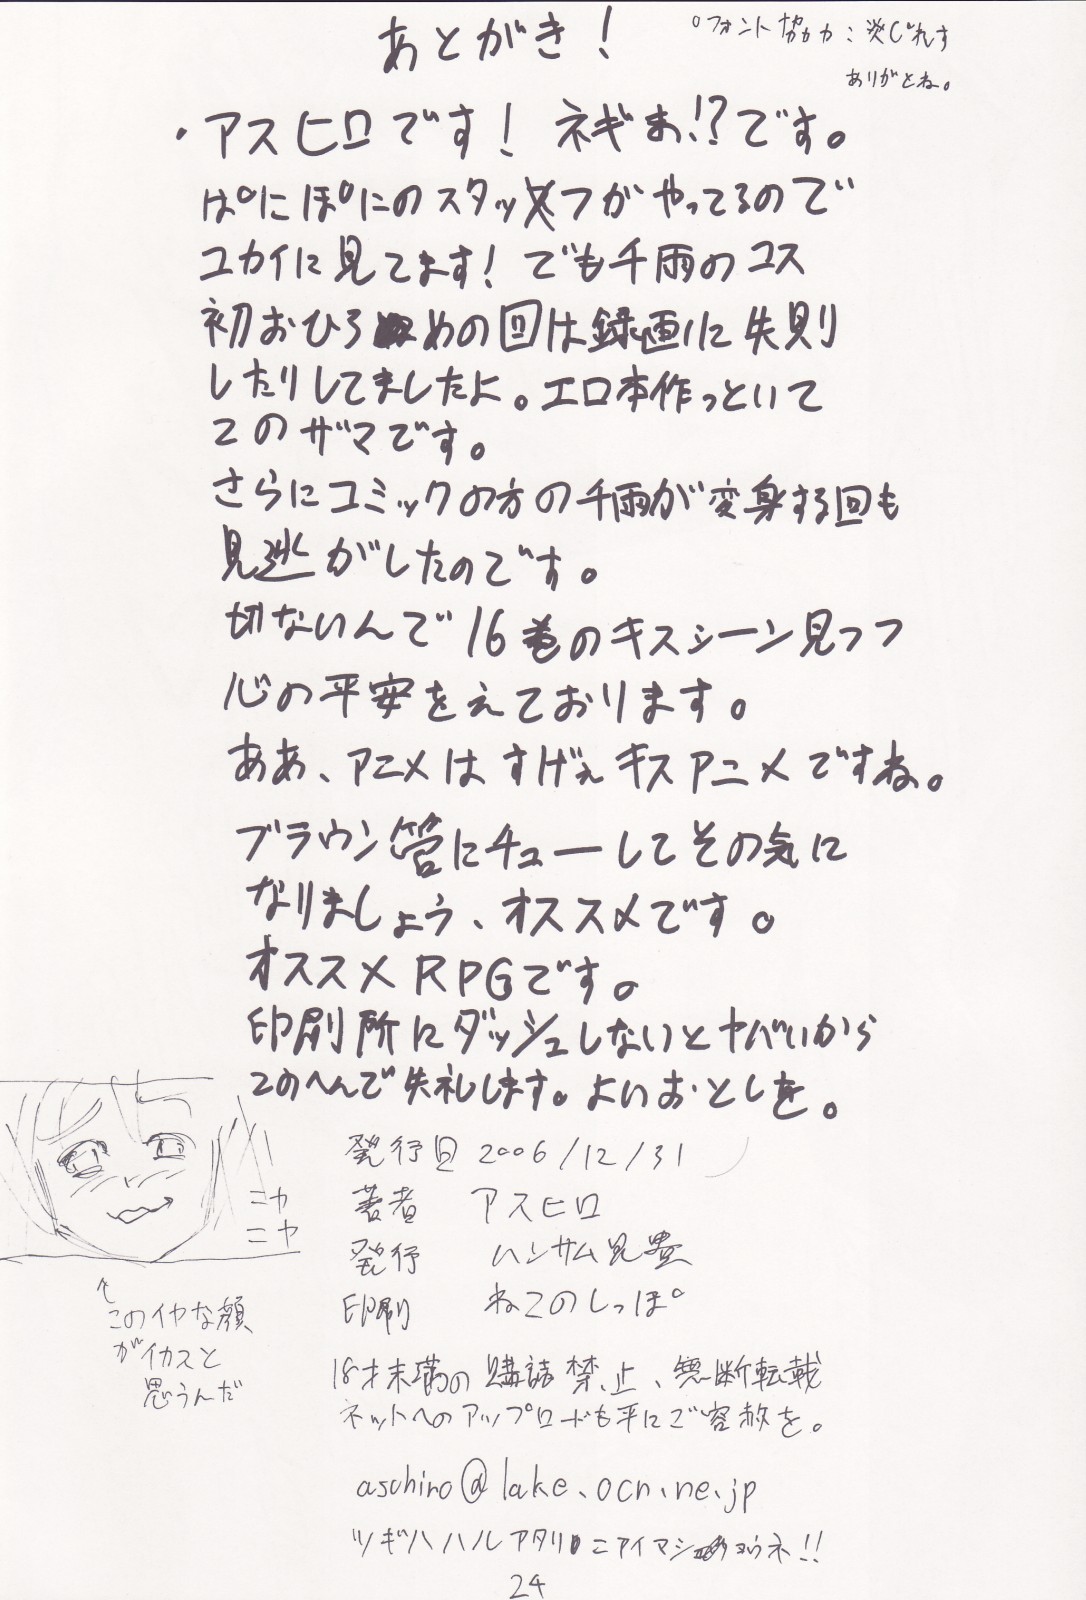 あとがき!
○フォント協力:炎じれす
ありがとね。
・アスヒロです! ネギま!?です。
ぱにぽにのスタッフがやってるので
ユカイに見てます!でも千雨のコス
初おひろめの回は録画に失則
したりしてましたよ。エロ本作っといて
このザマです。
さらにコミックの方の千雨が変身する回も
見逃がしたのです。
切ないんで16巻のキスシーン見つつ
心の平安をえております。
ああ、アニメはすげえキスアニメですね。
ブラウン管にチューしてその気に
なりましょう、オススメです。
オススメRPGです。
印刷所にダッシュしないとヤバいから
このへんで失礼します。よいおとしを。
ニヤ
ニヤ
↑
このイヤな顔
がイカスと
思うんだ
発行日 2006/12/31
著者 アスヒロ
発行 ハンサム兄貴
印刷 ねこのしっぽ
18才未満の購読禁止、無断転載
ネットへのアップロードも平にご容赦を。
aschiro@lake.ocn.ne.jp
ツギハハルアタリニアイマショウネ!!
24